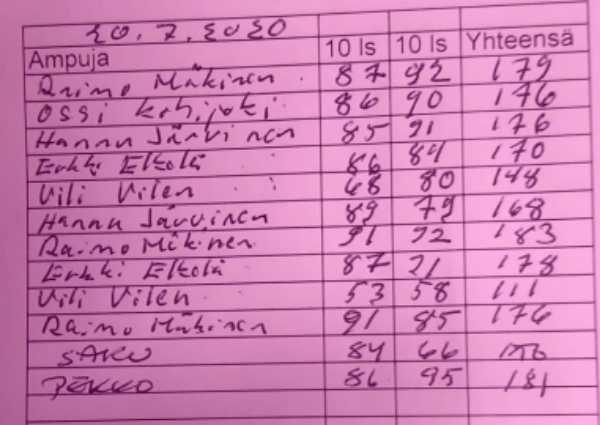 20.7.2020
Ampuja 10 ls 10 ls Yhteensä
Raimo Mäkinen 87 92 179
Ossi 86 90 176
Hannu Järvinen 85 91 176
Erkki Elkelä 86 84 170
Vili Vilen 68 80 148
Hannu Järvinen 89 79 168
Raimo Mäkinen 91 92 183
Erkki Elkelä 87 91 178
Vili Vilen 53 58 111
Raimo Mäkinen 91 85 176
SAKU 84 66
PEKKO 86 95 181